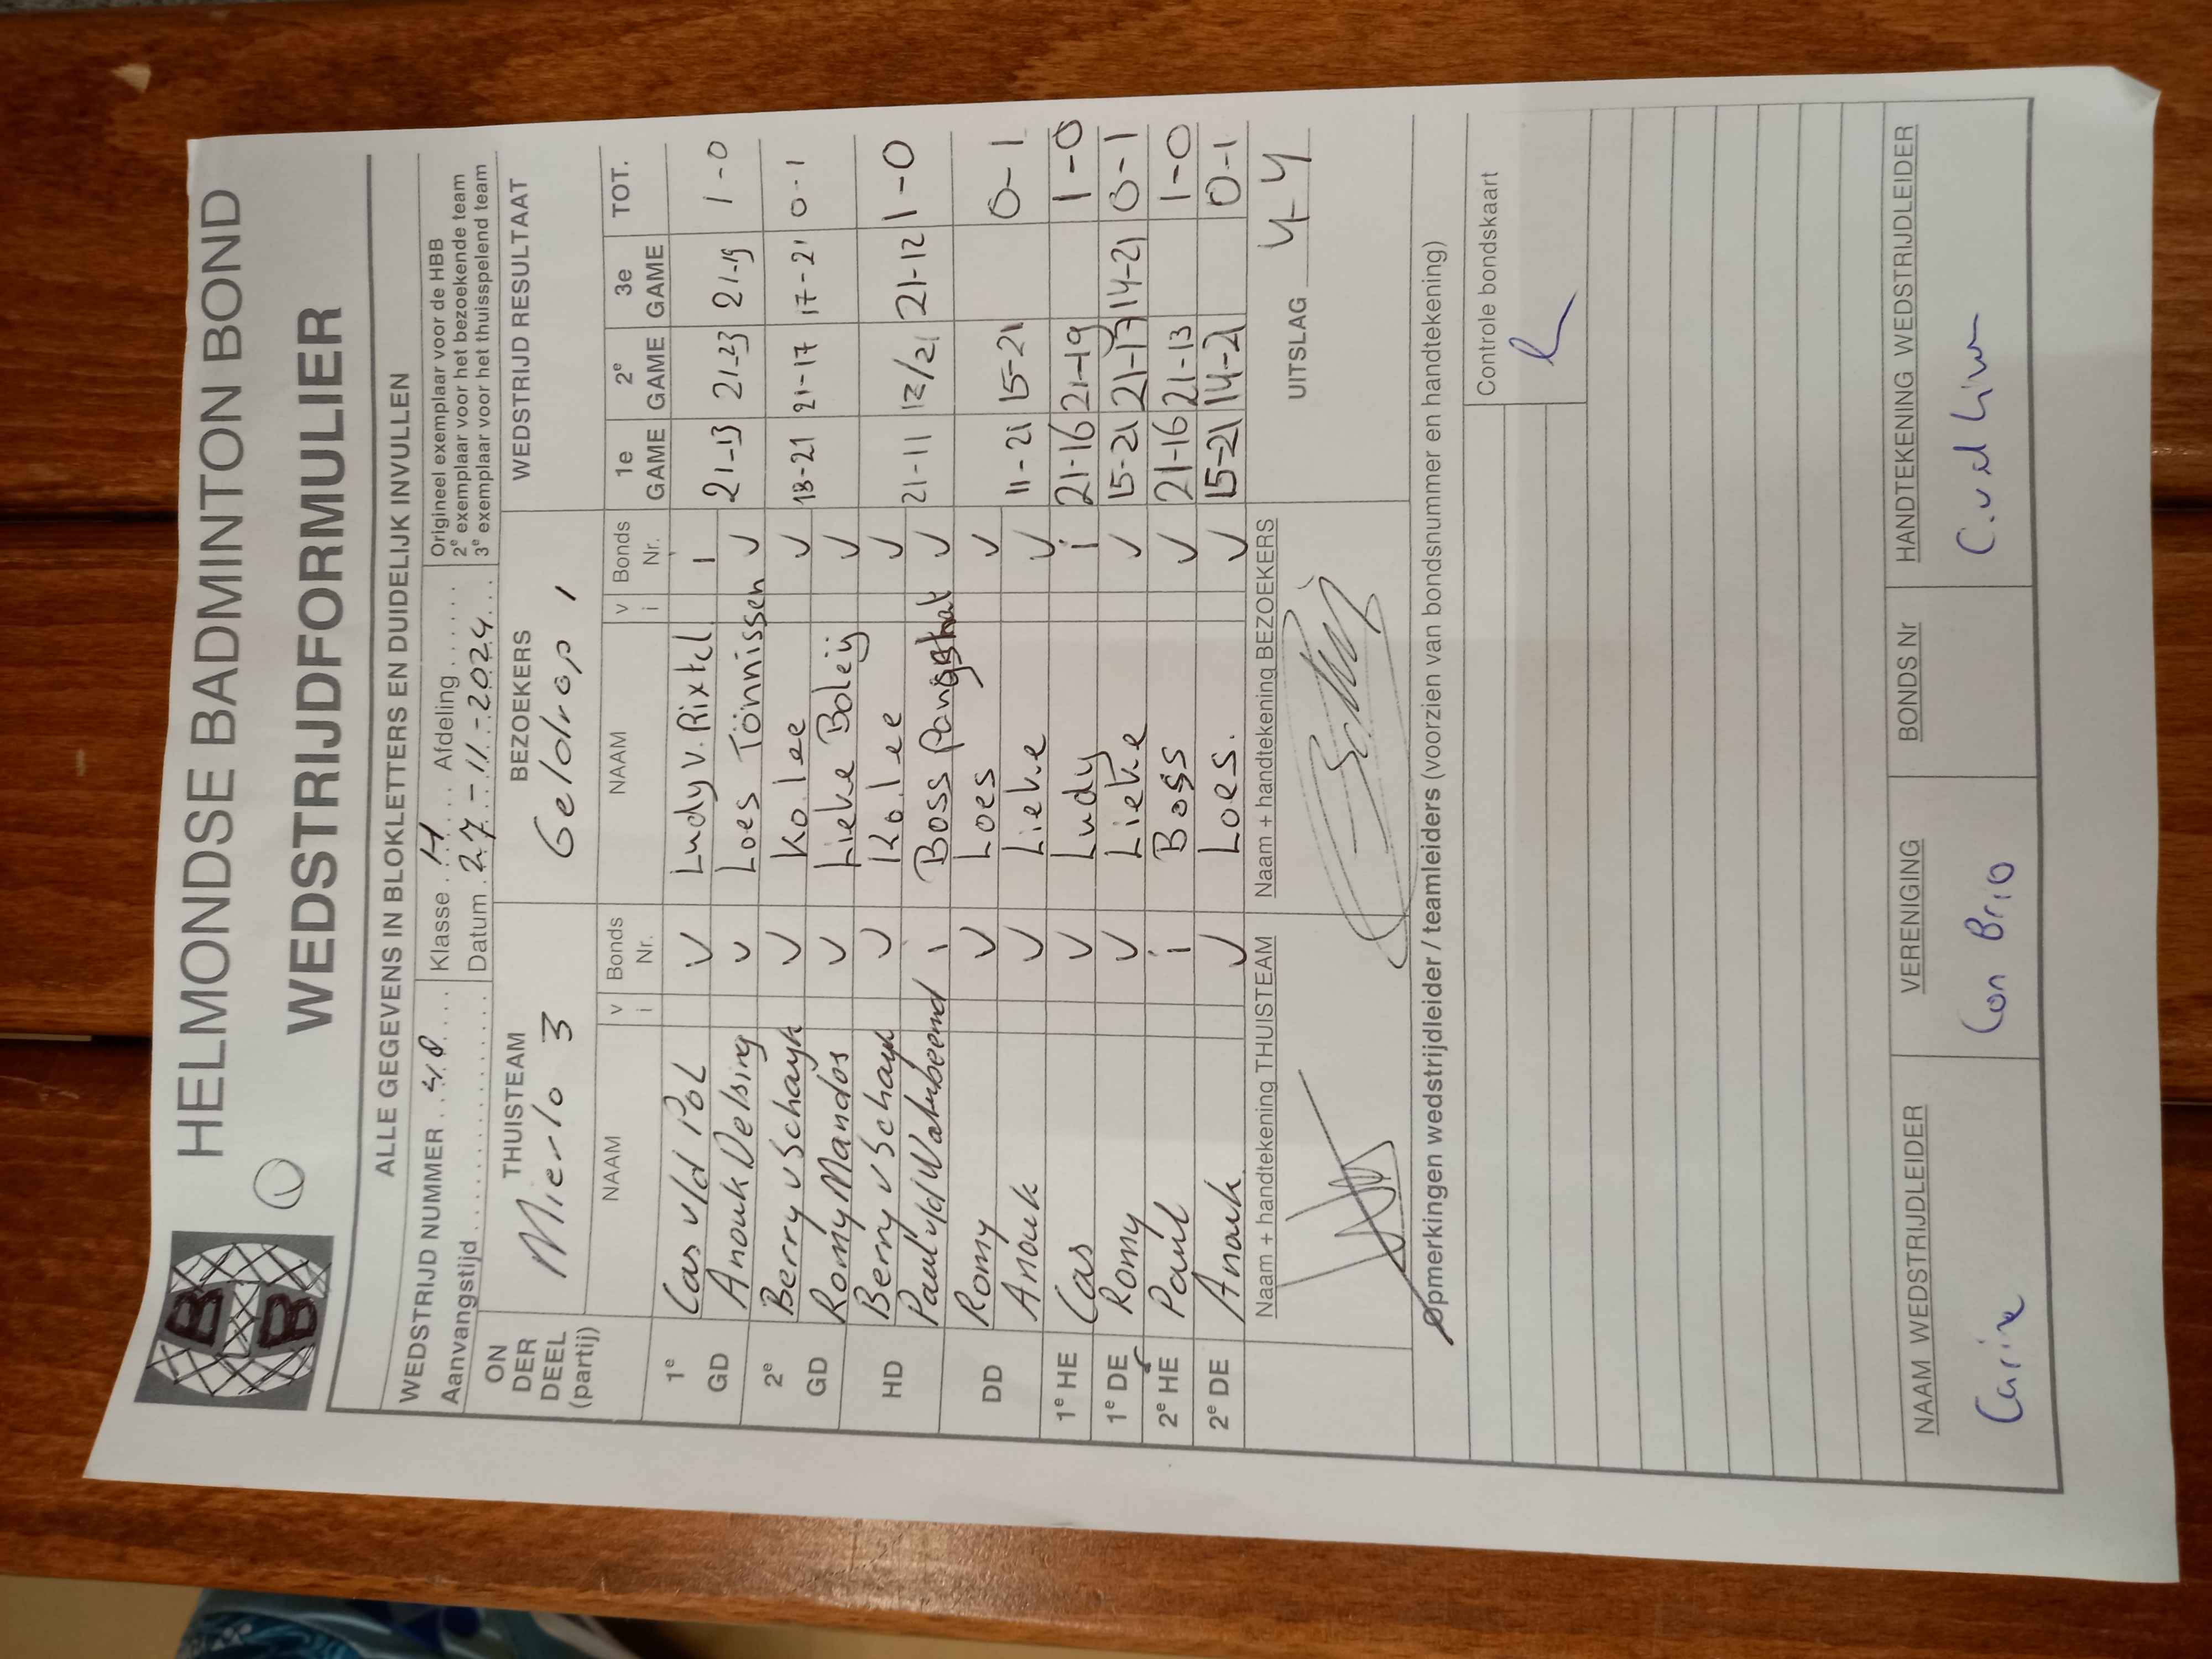 BB
HELMONDSE BADMINTON BOND
WEDSTRIJDFORMULIER
ALLE GEGEVENS IN BLOKLETTERS EN DUIDELIJK INVULLEN
WEDSTRIJD NUMMER ..48.... Klasse .H... Afdeling ...... Origineel exemplaar voor de HBB
2e exemplaar voor het bezoekende team
Aanvangstijd .................. Datum .27-11-2024... 3e exemplaar voor het thuisspelend team
ON DER DEEL (partij) THUISTEAM BEZOEKERS WEDSTRIJD RESULTAAT
Mierlo 3 Geldrop 1
NAAM v i Bonds Nr. NAAM v i Bonds Nr. 1e GAME 2e GAME 3e GAME TOT.
1e GD Cas v/d Pol V Ludy v. Rixtel 1 21-13 21-23 21-19 1-0
Anouk Delsing V Loes Tönnissen V
2e GD Berry v Schayk V Ko lee V 18-21 21-17 17-21 0-1
Romy Mandos V Lieke Boleij V
HD Berry v Schayk V Ko lee V 21-11 12/21 21-12 1-0
Paul v/d i Boss V
DD Romy V Loes V 11-21 15-21 0-1
Anouk V Lieke V
1e HE Cas V Ludy i 21-16 21-19 1-0
1e DE Romy V Lieke V 15-21 21-17 14-21 0-1
2e HE Paul i Boss V 21-16 21-13 1-0
2e DE Anouk V Loes. V 15-21 14-21 0-1
Naam + handtekening THUISTEAM Naam + handtekening BEZOEKERS UITSLAG 4-4
Opmerkingen wedstrijdleider / teamleiders (voorzien van bondsnummer en handtekening)
Controle bondskaart
NAAM WEDSTRIJDLEIDER VERENIGING BONDS Nr HANDTEKENING WEDSTRIJDLEIDER
Carine Con Brio